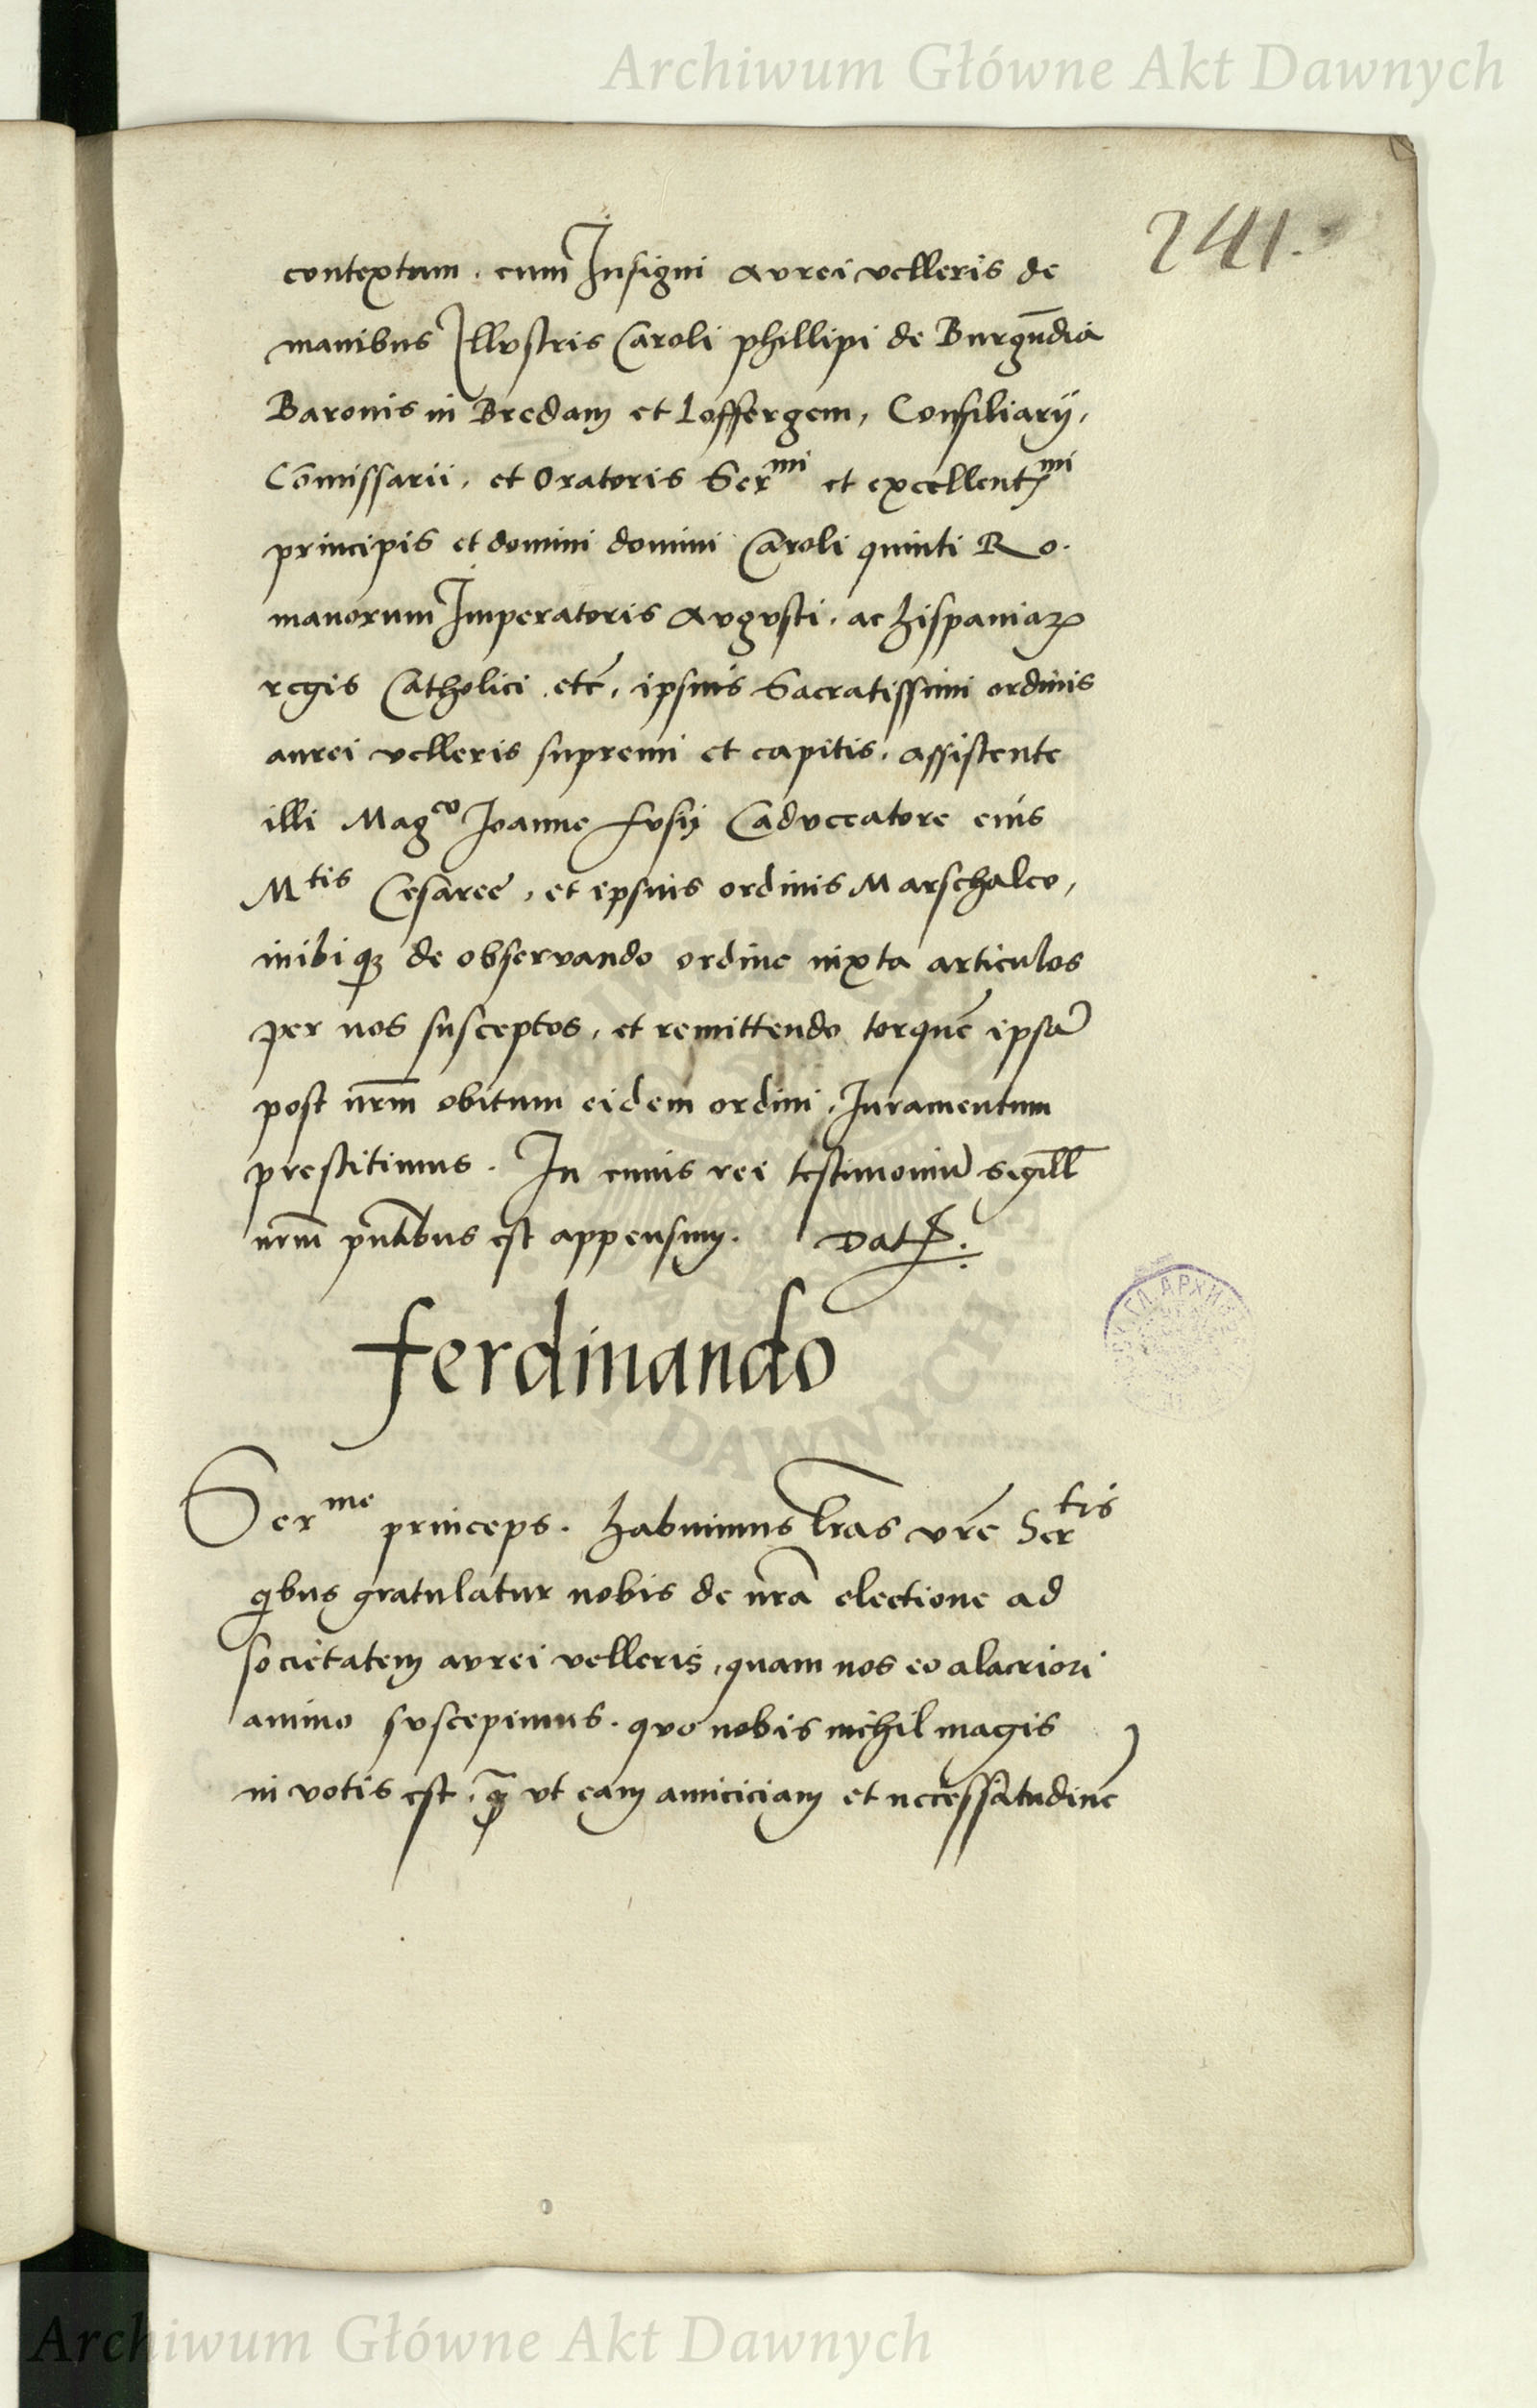 Archiwum Główne Akt Dawnych
241.
contextum. cum Insigni aurei velleris de
manibus Illustris Caroli phillipi de Burgūdia
Baronis in Bredam et Loffergem, Consiliarij,
Cōmissarii, et Oratoris Ser^mi et excellent^mi
principis et domini domini Caroli quinti Ro.
manorum Imperatoris Augusti. ac hispaniaꝝ
regis Catholici etc̄, ipsius Sacratissimi ordinis
aurei velleris supremi et capitis. assistente
illi Mag^co Joanne fusij Caduceatore eius
M^tis Cesaree, et ipsius ordinis Marschalco,
inibiqꝫ de observando ordine iuxta articulos
per nos susceptos, et remittendo torquē ipsā
post nr̄m obitum eidem ordini, Iuramentum
prestitimus. In cuius rei testimoniū sigill̄
nr̄m pn̄tibus est appensum. Dat̄.
ferdinando
Ser^me princeps. habuimus lr̄as vr̄e Ser^tis
qibus gratulatur nobis de nr̄a electione ad
societatem aurei velleris, quam nos eo alacriori
animo suscepimus. quo nobis nihil magis
in votis est. q̄ vt eam amiciciam et necessitudinē
Archiwum Główne Akt Dawnych